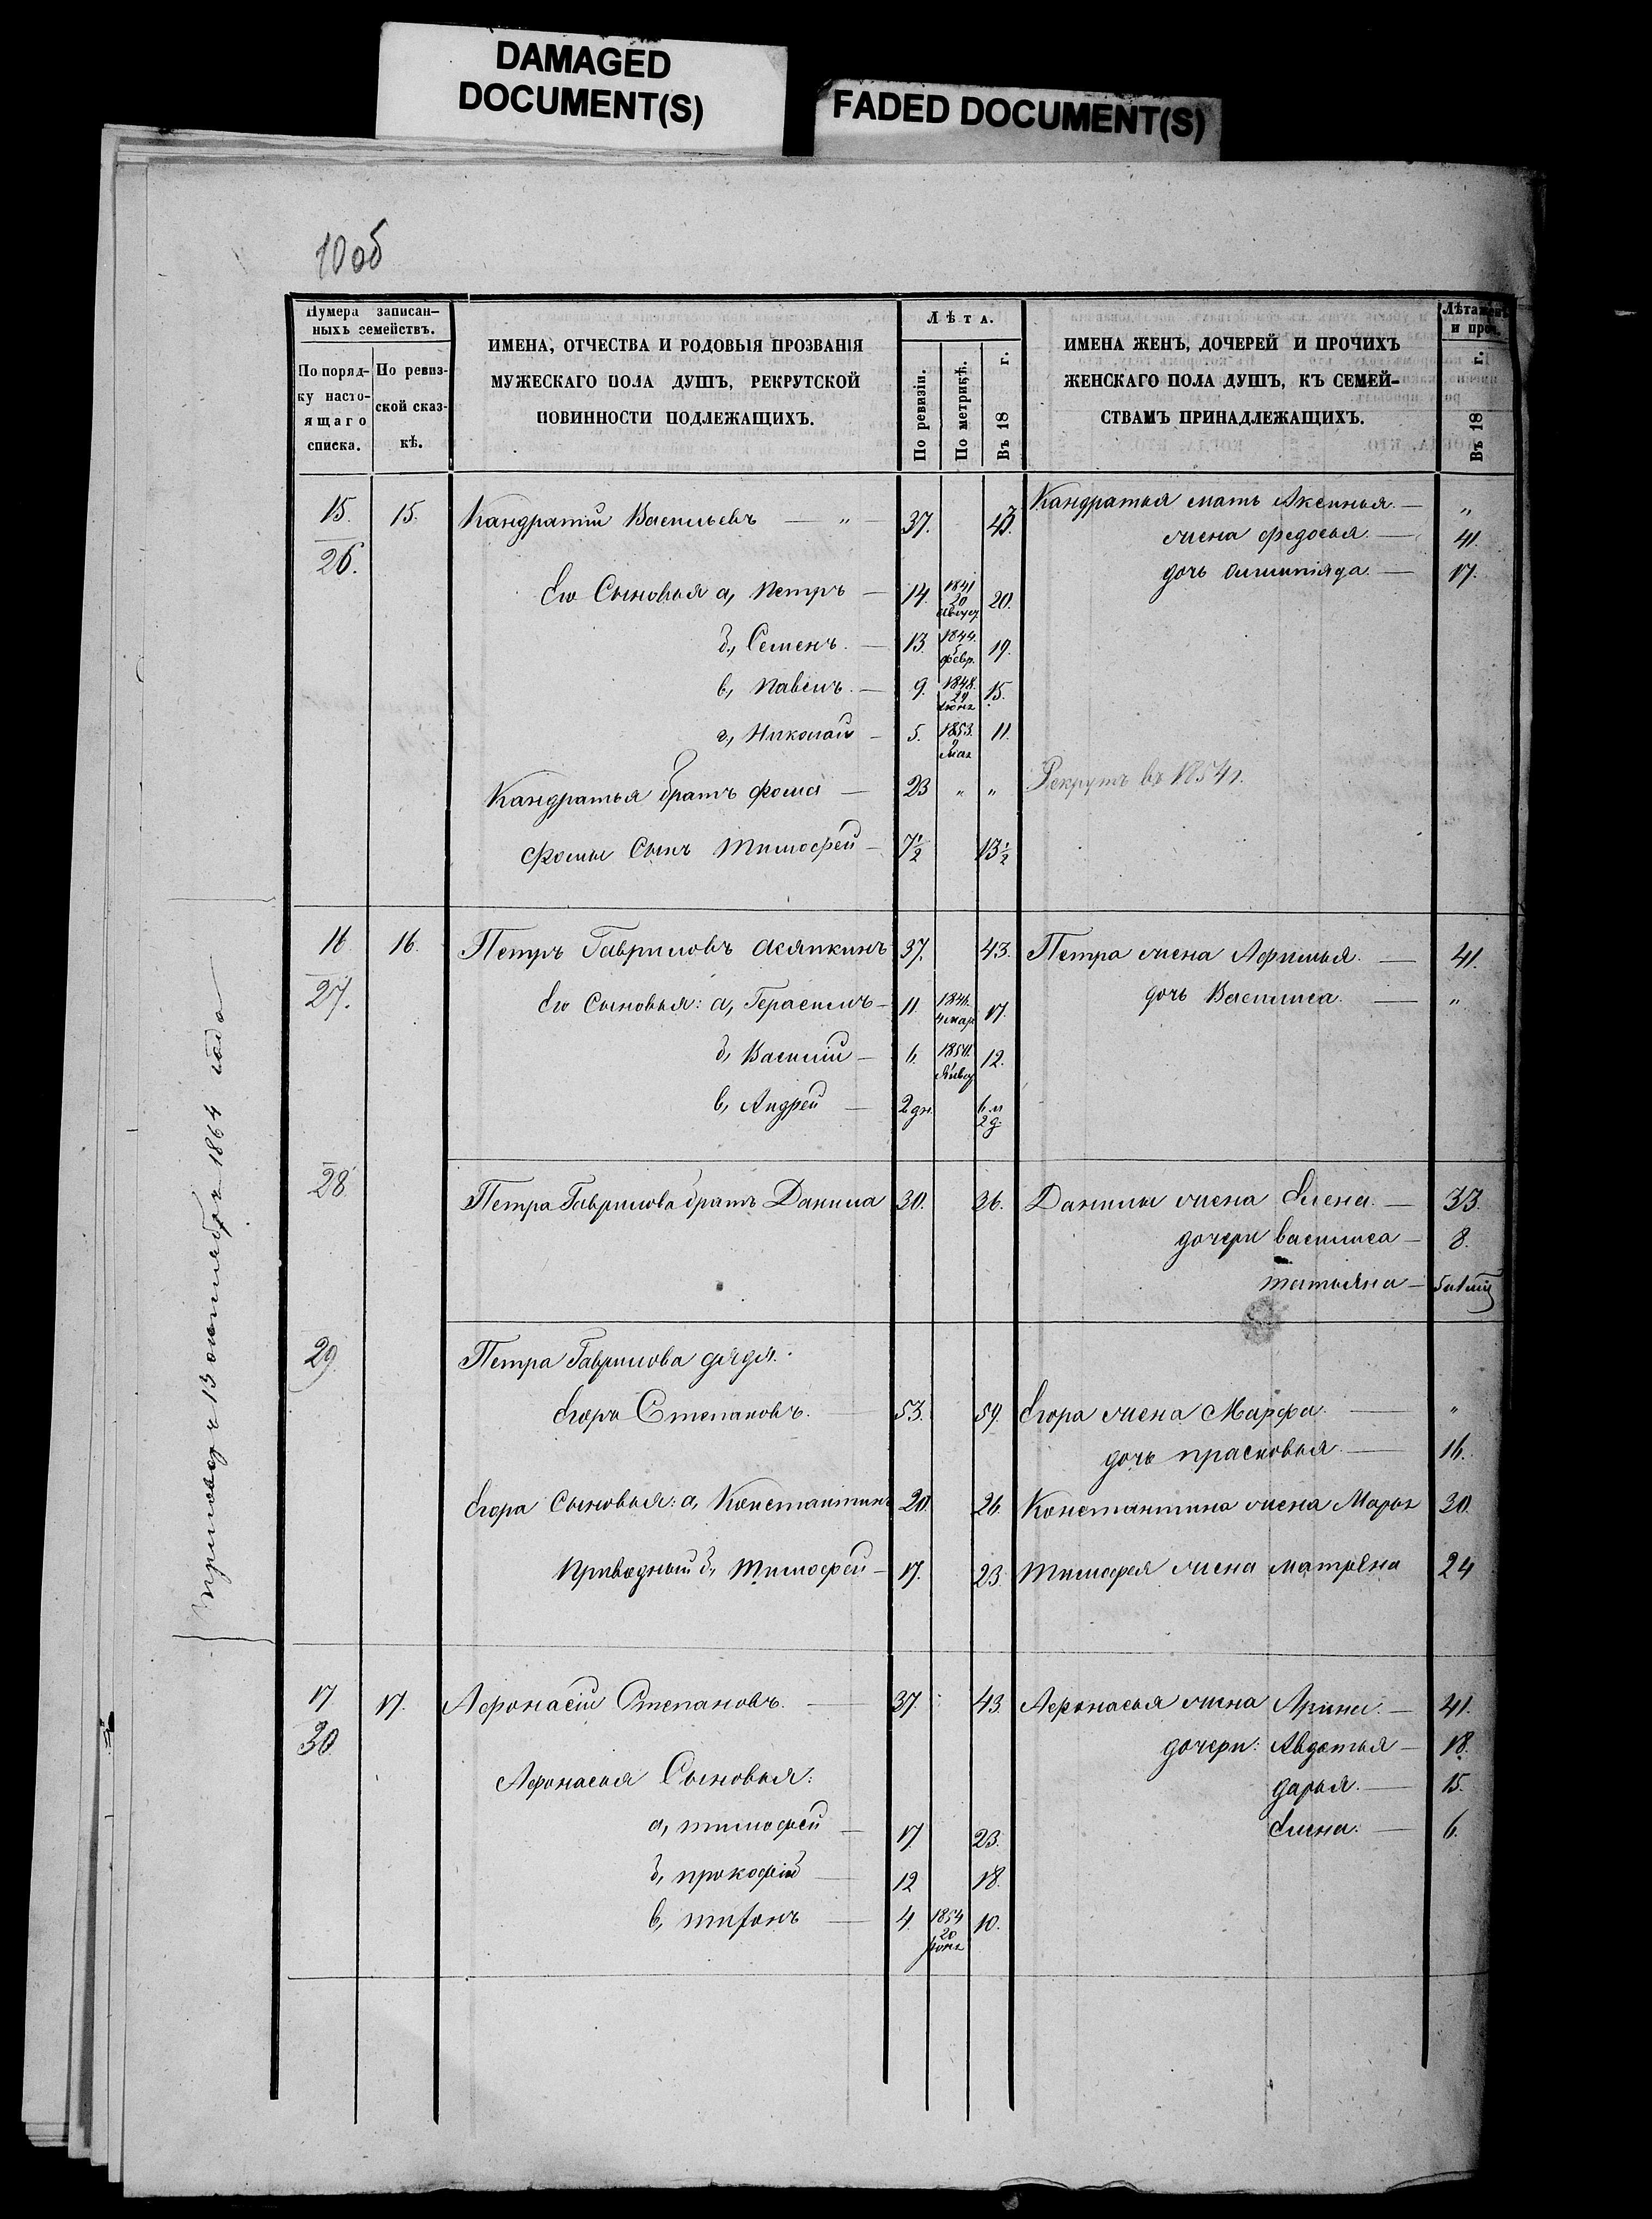 DAMAGED
DOCUMENT(S)
FADED DOCUMENT(S)
10 об
Нумера записан-
ныхъ семействъ.
По поряд-
ку насто-
ящаго
списка.
По ревиз-
ской сказ-
кѣ.
ИМЕНА, ОТЧЕСТВА И РОДОВЫЯ ПРОЗВАНІЯ
МУЖЕСКАГО ПОЛА ДУШЪ, РЕКРУТСКОЙ
ПОВИННОСТИ ПОДЛЕЖАЩИХЪ.
Лѣта.
По ревизіи.
По метрикѣ.
Въ 18 г.
ИМЕНА ЖЕНЪ, ДОЧЕРЕЙ И ПРОЧИХЪ
ЖЕНСКАГО ПОЛА ДУШЪ, КЪ СЕМЕЙ-
СТВАМЪ ПРИНАДЛЕЖАЩИХЪ.
Лѣта женъ
и проч.
Въ 18 г.
15. 15. Кандратій Васильевъ — „ — 37. 43. Кандратья мать Аксинья. — „
26. жена Федосья. — 41.
дочь Олимпіяда. — 17.
Его Сыновья а, Петръ — 14. 1841 20 Август 20.
б, Семенъ. — 13. 1844. 5 февр. 19.
в, Павелъ. — 9. 1848. 29 Іюня 15.
г, Николай — 5. 1853. 9 Мая 11.
Кандратья братъ Фома — 23 „ „ Рекрутъ въ 1854 г.
Фомы Сынъ Тимофей — 7½ 13½
16 16. Петръ Гавриловъ Асяпкинъ 37. 43. Петра жена Афимья. — 41.
27. дочь Василиса. — „
Его Сыновья: а, Герасимъ — 11. 1846. 4 мар 17.
б, Василій — 6. 12.
в, Андрей — 2 дн. 6 м 2 д.
28. Петра Гаврилова братъ Данила 30. 36. Данилы жена Елена. — 33.
дочери Василиса — 8.
татьяна —
29. Петра Гаврилова дядя.
Егоръ Степановъ. — 53. 59. Егора жена Марфа. — „
дочь прасковья — 16.
Егора Сыновья: а, Константинъ 20. 26. Константина жена Марья 30.
Приводный б, Тимофей — 17. 23. Тимофея жена матрёна 24
17 17. Афонасій Степановъ. — 37. 43. Афонасья жена Арина. — 41.
30. дочери: Авдотья — 18.
Афонасья Сыновья: дарья. — 15.
Елена. — 6.
а, тимофей — 17 23.
б, прокофій — 12 18.
в, тифонъ — 4. 1854 20 Іюня 10.
13 октября 1864 года